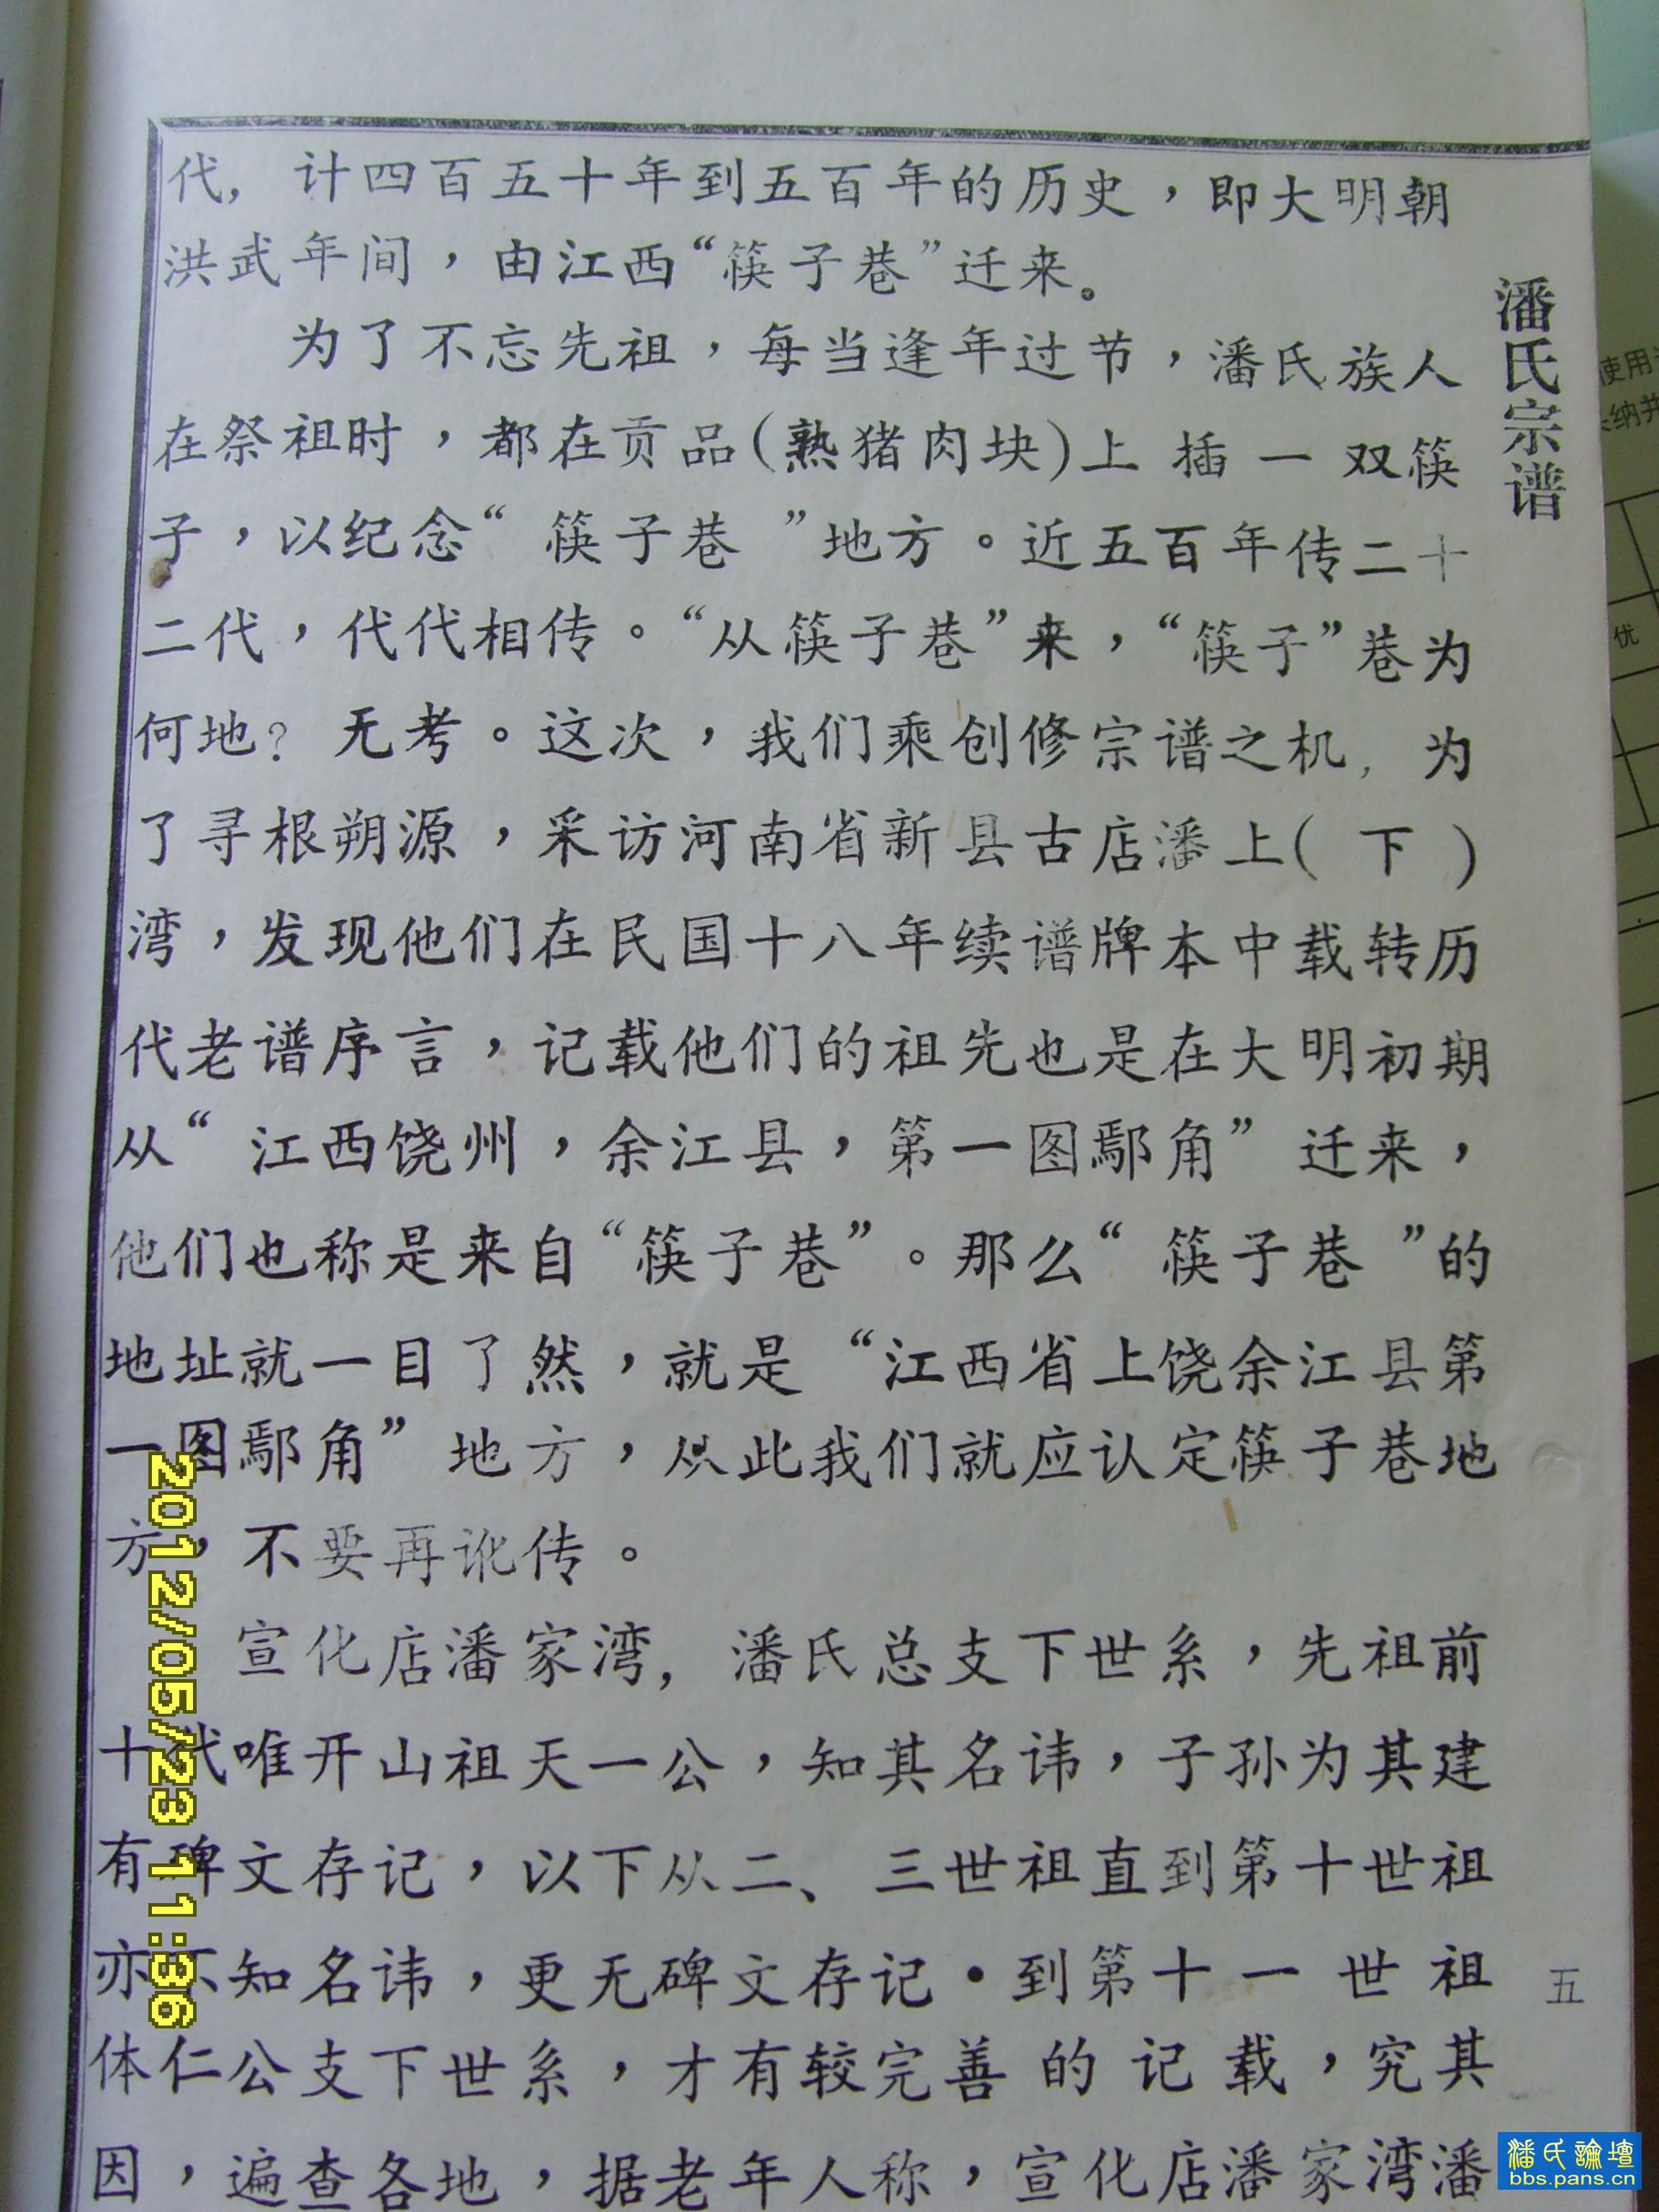 代，计四百五十年到五百年的历史，即大明朝
洪武年间，由江西“筷子巷”迁来。
为了不忘先祖，每当逢年过节，潘氏族人
在祭祖时，都在贡品(熟猪肉块)上插一双筷
子，以纪念“筷子巷”地方。近五百年传二十
二代，代代相传。“从筷子巷”来，“筷子”巷为
何地？无考。这次，我们乘创修宗谱之机，为
了寻根朔源，采访河南省新县古店潘上(下)
湾，发现他们在民国十八年续谱牌本中载转历
代老谱序言，记载他们的祖先也是在大明初期
从“江西饶州，余江县，第一图鄢角”迁来，
他们也称是来自“筷子巷”。那么“筷子巷”的
地址就一目了然，就是“江西省上饶余江县第
一图鄢角”地方，从此我们就应认定筷子巷地
方，不要再讹传。
宣化店潘家湾，潘氏总支下世系，先祖前
十代唯开山祖天一公，知其名讳，子孙为其建
有碑文存记，以下从二、三世祖直到第十世祖
亦不知名讳，更无碑文存记·到第十一世祖
体仁公支下世系，才有较完善的记载，究其
因，遍查各地，据老年人称，宣化店潘家湾潘
潘氏宗谱
五
使用
纳并
优
2012/05/23 11:36
潘氏論壇
bbs.pans.cn